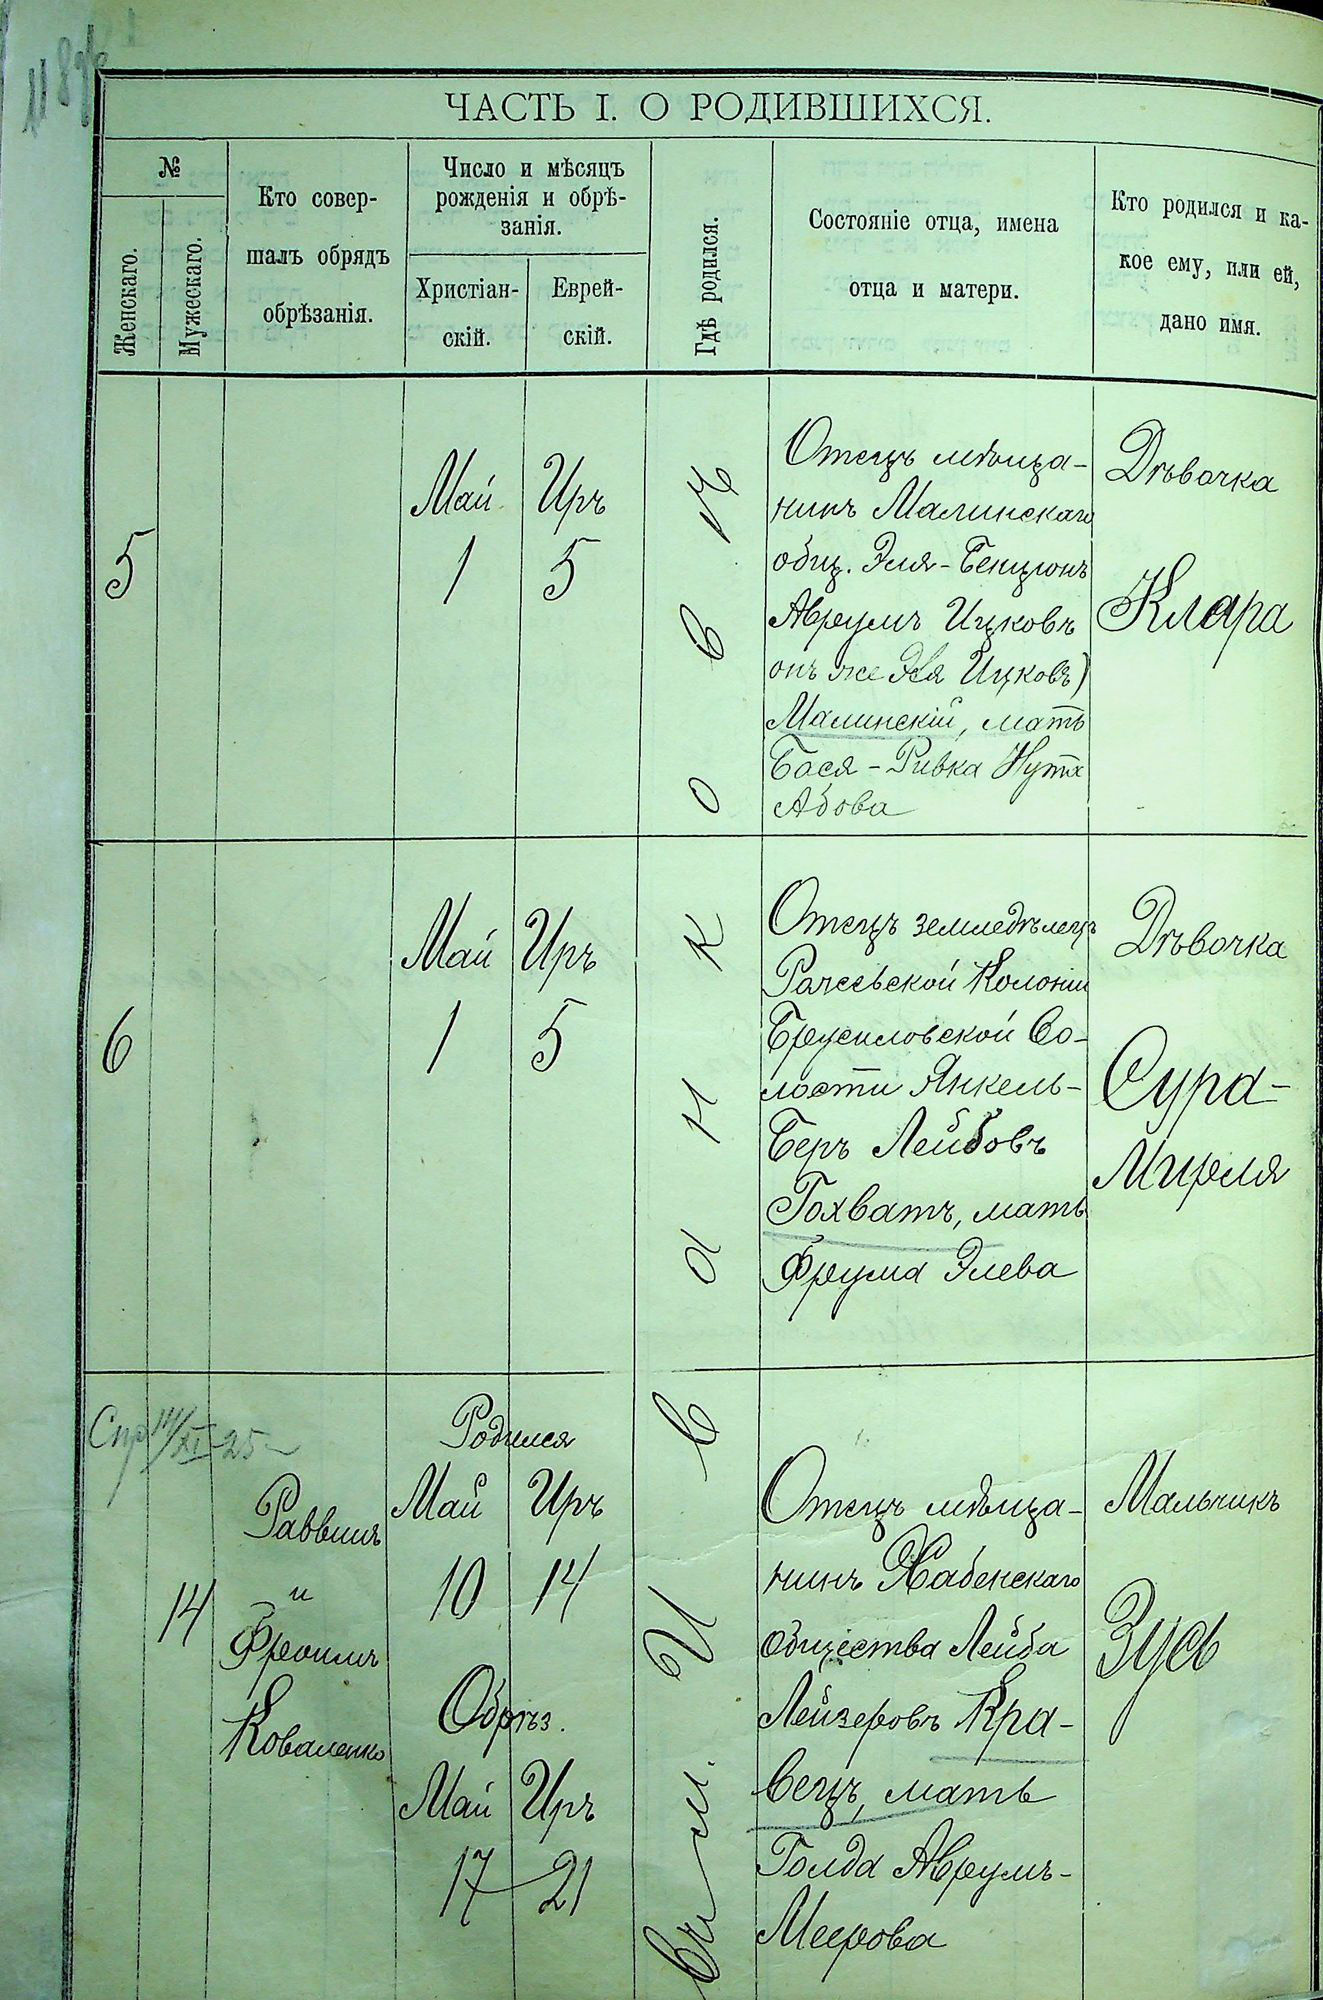 118
ЧАСТЬ I. О РОДИВШИХСЯ.
№
Женскаго.
Мужескаго.
Кто совер-
шалъ обрядъ
обрѣзанія.
Число и мѣсяцъ
рожденія и обрѣ-
занія.
Христіан-
скій.
Еврей-
скій.
Гдѣ родился.
Состояніе отца, имена
отца и матери.
Кто родился и ка-
кое ему, или ей,
дано имя.
Въ м. Иванковѣ
5
Май Иръ
1 5
Отецъ мѣща-
нинъ Малинскаго
общ. Эля-Бенціонъ
Аврумъ Ицковъ
онъ же Эля Ицковъ)
Малинскій, мать
Бася-Ривка Нута
Абова
Дѣвочка
Клара
6
Май Иръ
1 5
Отецъ земледѣлецъ
Рачевской Колоніи
Брусиловской Во-
лости Янкель-
Беръ Лейбовъ
Гохватъ, мать
Фрума Элева
Дѣвочка
Сура-
Миреля
Спр 14/XI-25
14
Раввинъ
и
Фроимъ
Коваленко
Родился
Май Иръ
10 14
Обрѣз.
Май Иръ
17 21
Отецъ мѣща-
нинъ Хабенскаго
общества Лейба
Лейзеровъ Кра-
вецъ, мать
Голда Аврумъ-
Меерова
Мальчикъ
Зусь